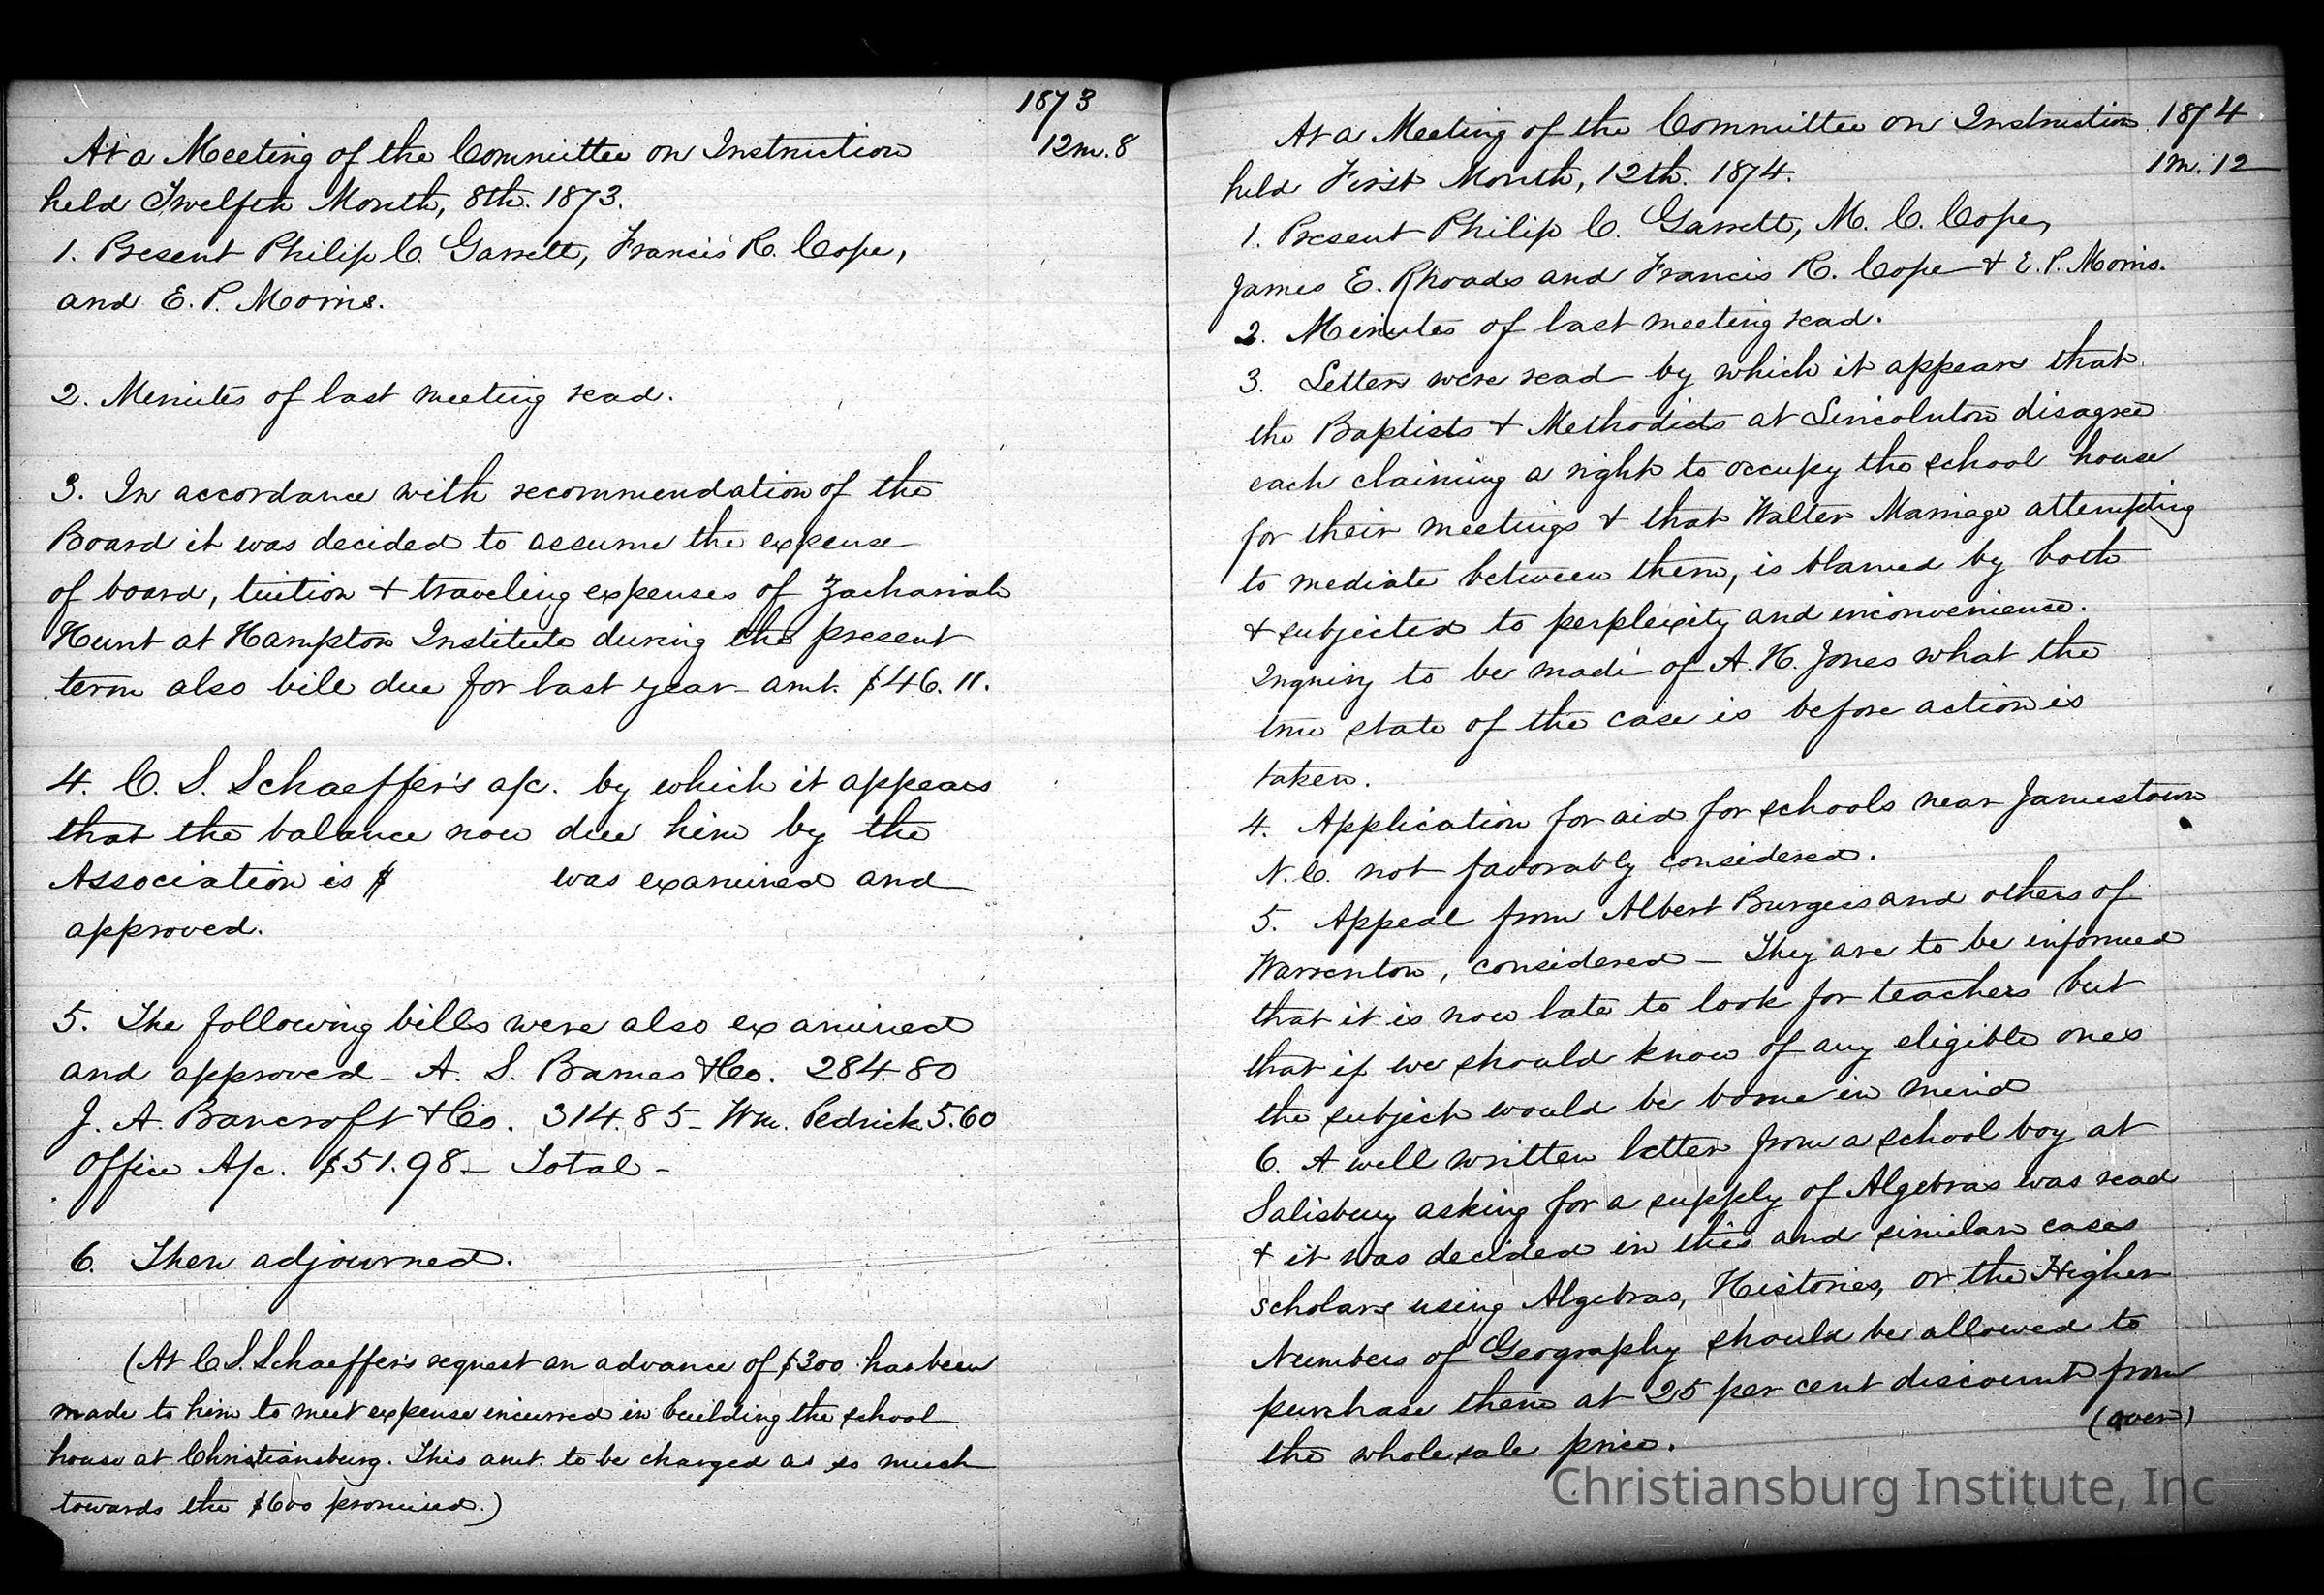 1873
12m. 8
At a Meeting of the Committee on Instruction
held Twelfth Month, 8th. 1873.
1. Present Philip C. Garrett, Francis R. Cope,
and E. P. Morris.
2. Minutes of last meeting read.
3. In accordance with recommendation of the
Board it was decided to assume the expense
of board, tuition & traveling expenses of Zachariah
Hunt at Hampton Institute during the present
term also bill due for last year amt. $46.11.
4. C. S. Schaeffer's a/c. by which it appears
that the balance now due him by the
Association is $ was examined and
approved.
5. The following bills were also examined
and approved - A. S. Barnes & Co. 284.80
J. A. Bancroft & Co. 314.85 - Wm. Pedrick 5.60
Office A/c. $51.98 - Total -
6. Then adjourned.
(At C. S. Schaeffer's request an advance of $300 has been
made to him to meet expense incurred in building the school
house at Christiansburg. This amt. to be charged as so much
towards the $600 promised.)
1874
1m. 12
At a Meeting of the Committee on Instruction
held First Month, 12th. 1874.
1. Present Philip C. Garrett, M. C. Cope,
James E. Rhoads and Francis R. Cope & E. P. Morris.
2. Minutes of last meeting read.
3. Letters were read by which it appears that
the Baptists & Methodists at Lincolnton disagree
each claiming a right to occupy the school house
for their meetings & that Walter Marriage attempting
to mediate between them, is blamed by both
& subjected to perplexity and inconvenience.
Inquiry to be made of A. H. Jones what the
true state of the case is before action is
taken.
4. Application for aid for schools near Jamestown
N. C. not favorably considered.
5. Appeal from Albert Burgess and others of
Warrenton, considered - They are to be informed
that it is now late to look for teachers but
that if we should know of any eligible ones
the subject would be borne in mind
6. A well written letter from a school boy at
Salisbury asking for a supply of Algebras was read
& it was decided in this and similar cases
scholars using Algebras, Histories, or the Higher
Numbers of Geography should be allowed to
purchase them at 25 per cent discount from
the wholesale price.
(over)
Christiansburg Institute, Inc